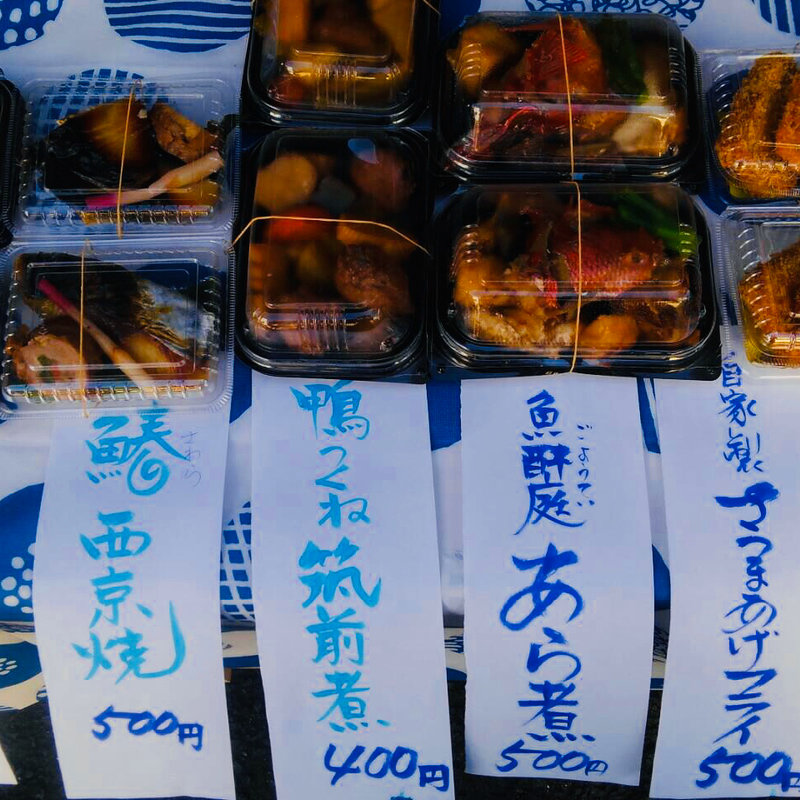 鰆
さわら
西京焼
500円
鴨つくね
筑前煮
400円
魚酔庭
ごよってい
あら煮
500円
自家製
さつまあげフライ
500円